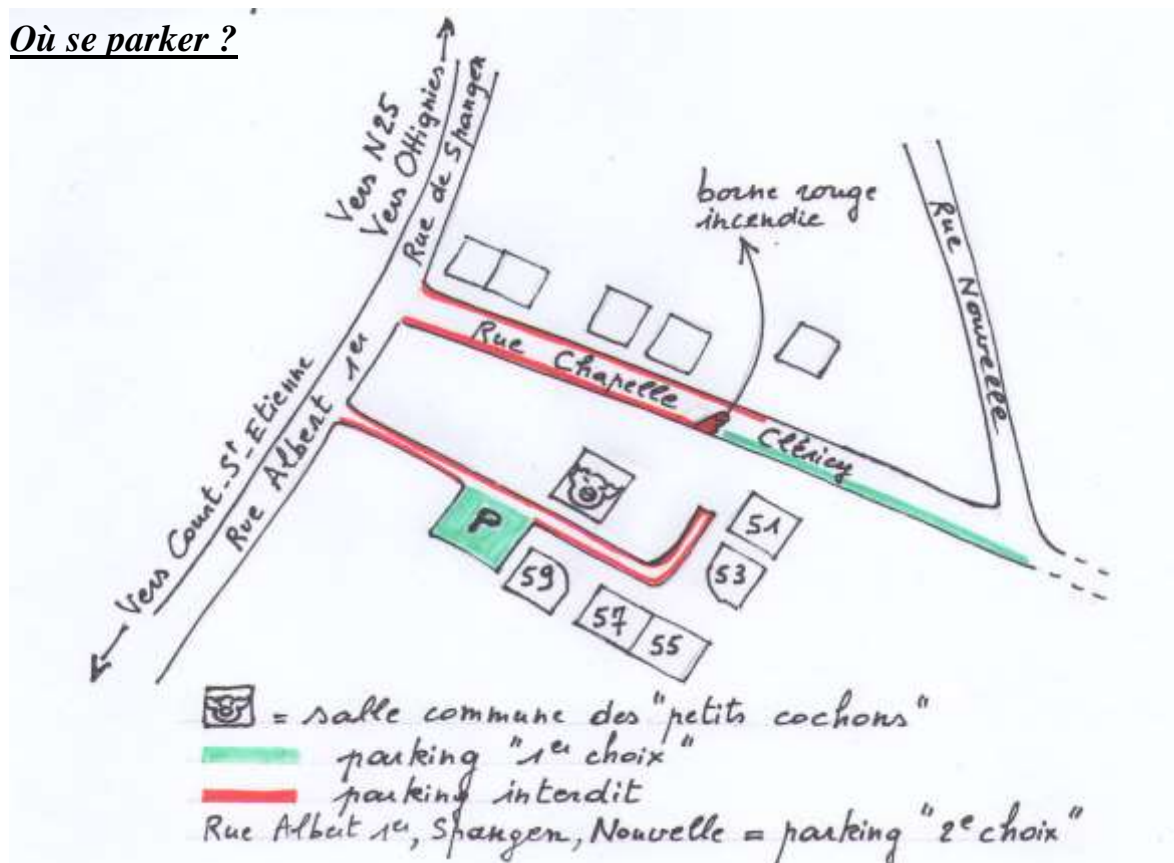 Où se parker ?
Vers N25
Vers Ottignies
Rue de Spangen
borne rouge
incendie
Rue Nouvelle
Rue Chapelle Cléricy
Vers Court-St-Etienne
Rue Albert 1er
P
51
53
59
57
55
= salle commune des "petits cochons"
parking "1er choix"
parking interdit
Rue Albert 1er, Spangen, Nouvelle = parking "2e choix"